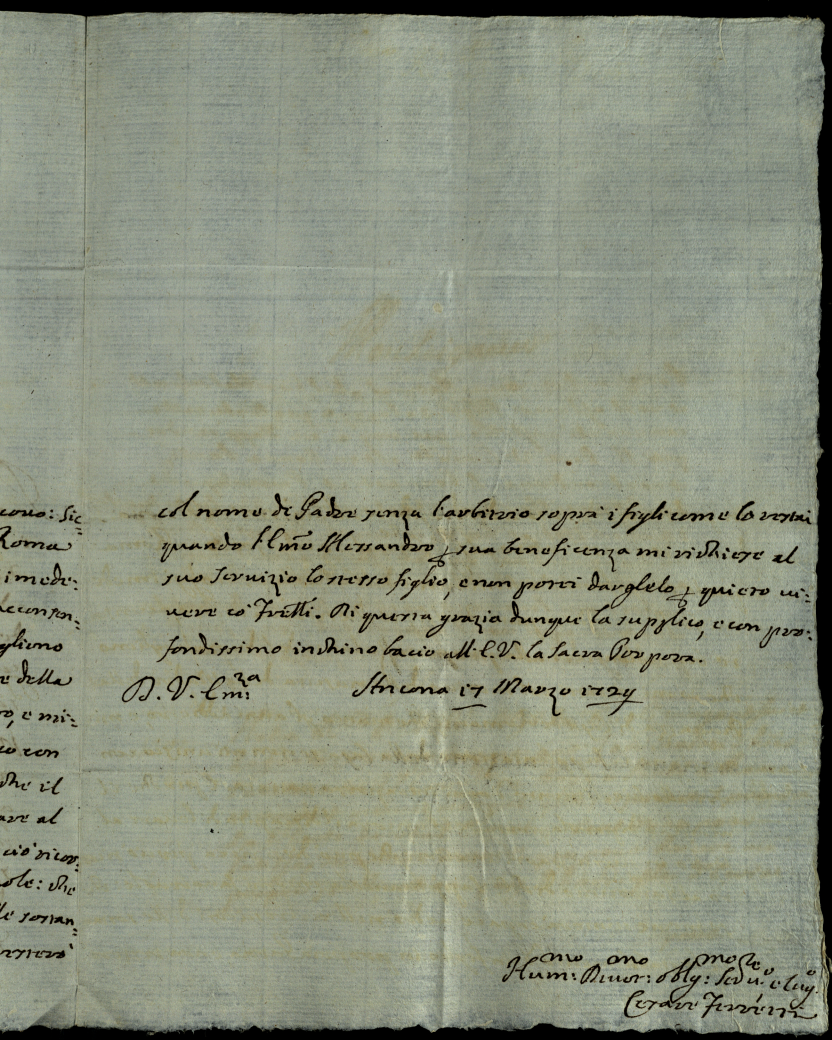 cono: Sic=
Roma
imede=
acconsen=
gliono
e della
o, e mi=
co con
che il
are al
ciò ricor=
ole: che
le sostan=
col nome de Padre senza l'arbitrio sopra i figli come lo restai
quando l'Emo Alessandro p sua beneficenza mi richiese al
suo servizio lo stesso figlio, e non potei darglelo p quieto vi=
vere co' Fretlli. Di questa grazia dunque la supplico, e con pro=
fondissimo inchino bacio all' E.V. la Sacra Porpora.
D. V. Emza Ancona 17 Marzo 1729
Hummo Divotmo oblgmo Servre e
Cesare Ferretti